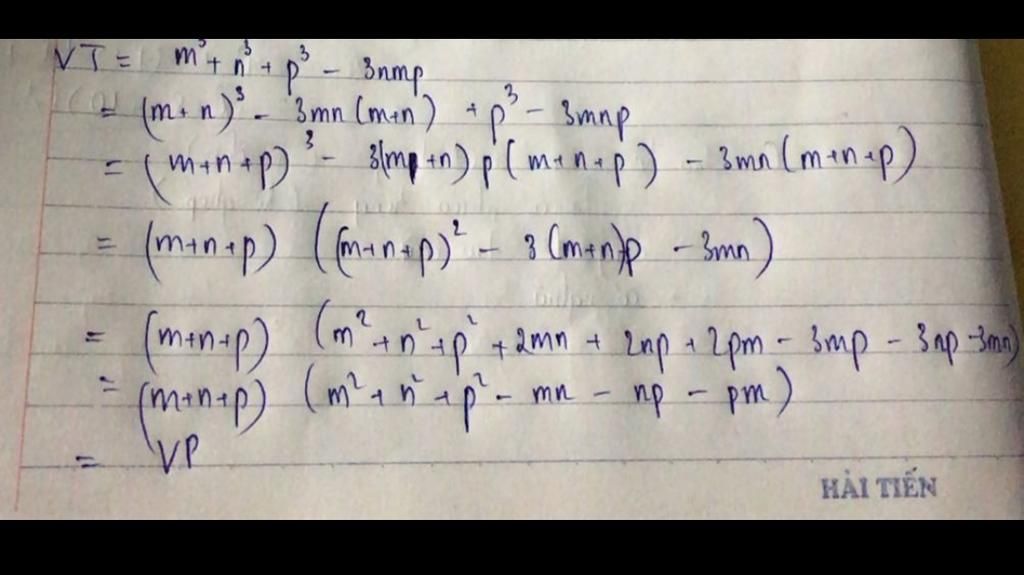 VT = m³ + n³ + p³ - 3nmp
= (m+n)³ - 3mn(m+n) + p³ - 3mnp
= (m+n+p)³ - 3(m+n)p(m+n+p) - 3mn(m+n+p)
= (m+n+p) ((m+n+p)² - 3(m+n)p - 3mn)
= (m+n+p) (m² + n² + p² + 2mn + 2np + 2pm - 3mp - 3np - 3mn)
= (m+n+p) (m² + n² + p² - mn - np - pm)
= VP
HẢI TIẾN